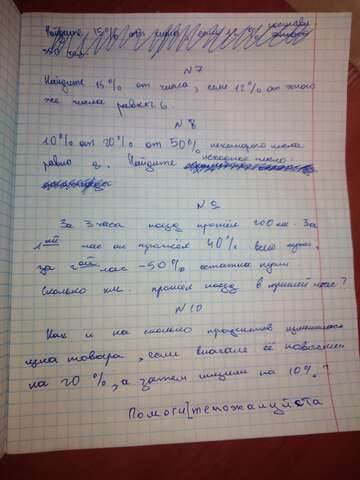 Найдите 15% от числа, если
N 7
Найдите 15% от числа, если 12% от этого
же числа равны 6.
N 8
10% от 20% от 50% некоторого числа
равно 2. Найдите исходное число.
N 9
За 3 часа поезд прошёл 200 км. За
1ый час он прошёл 40% всего пути,
за 2ой час - 50% остатка пути.
Сколько км. прошёл поезд в третий час?
N 10
Как и на сколько процентов изменилась
цена товара, если вначале её повысили
на 20%, а затем снизили на 10%?
Помоги[те пожалуйста